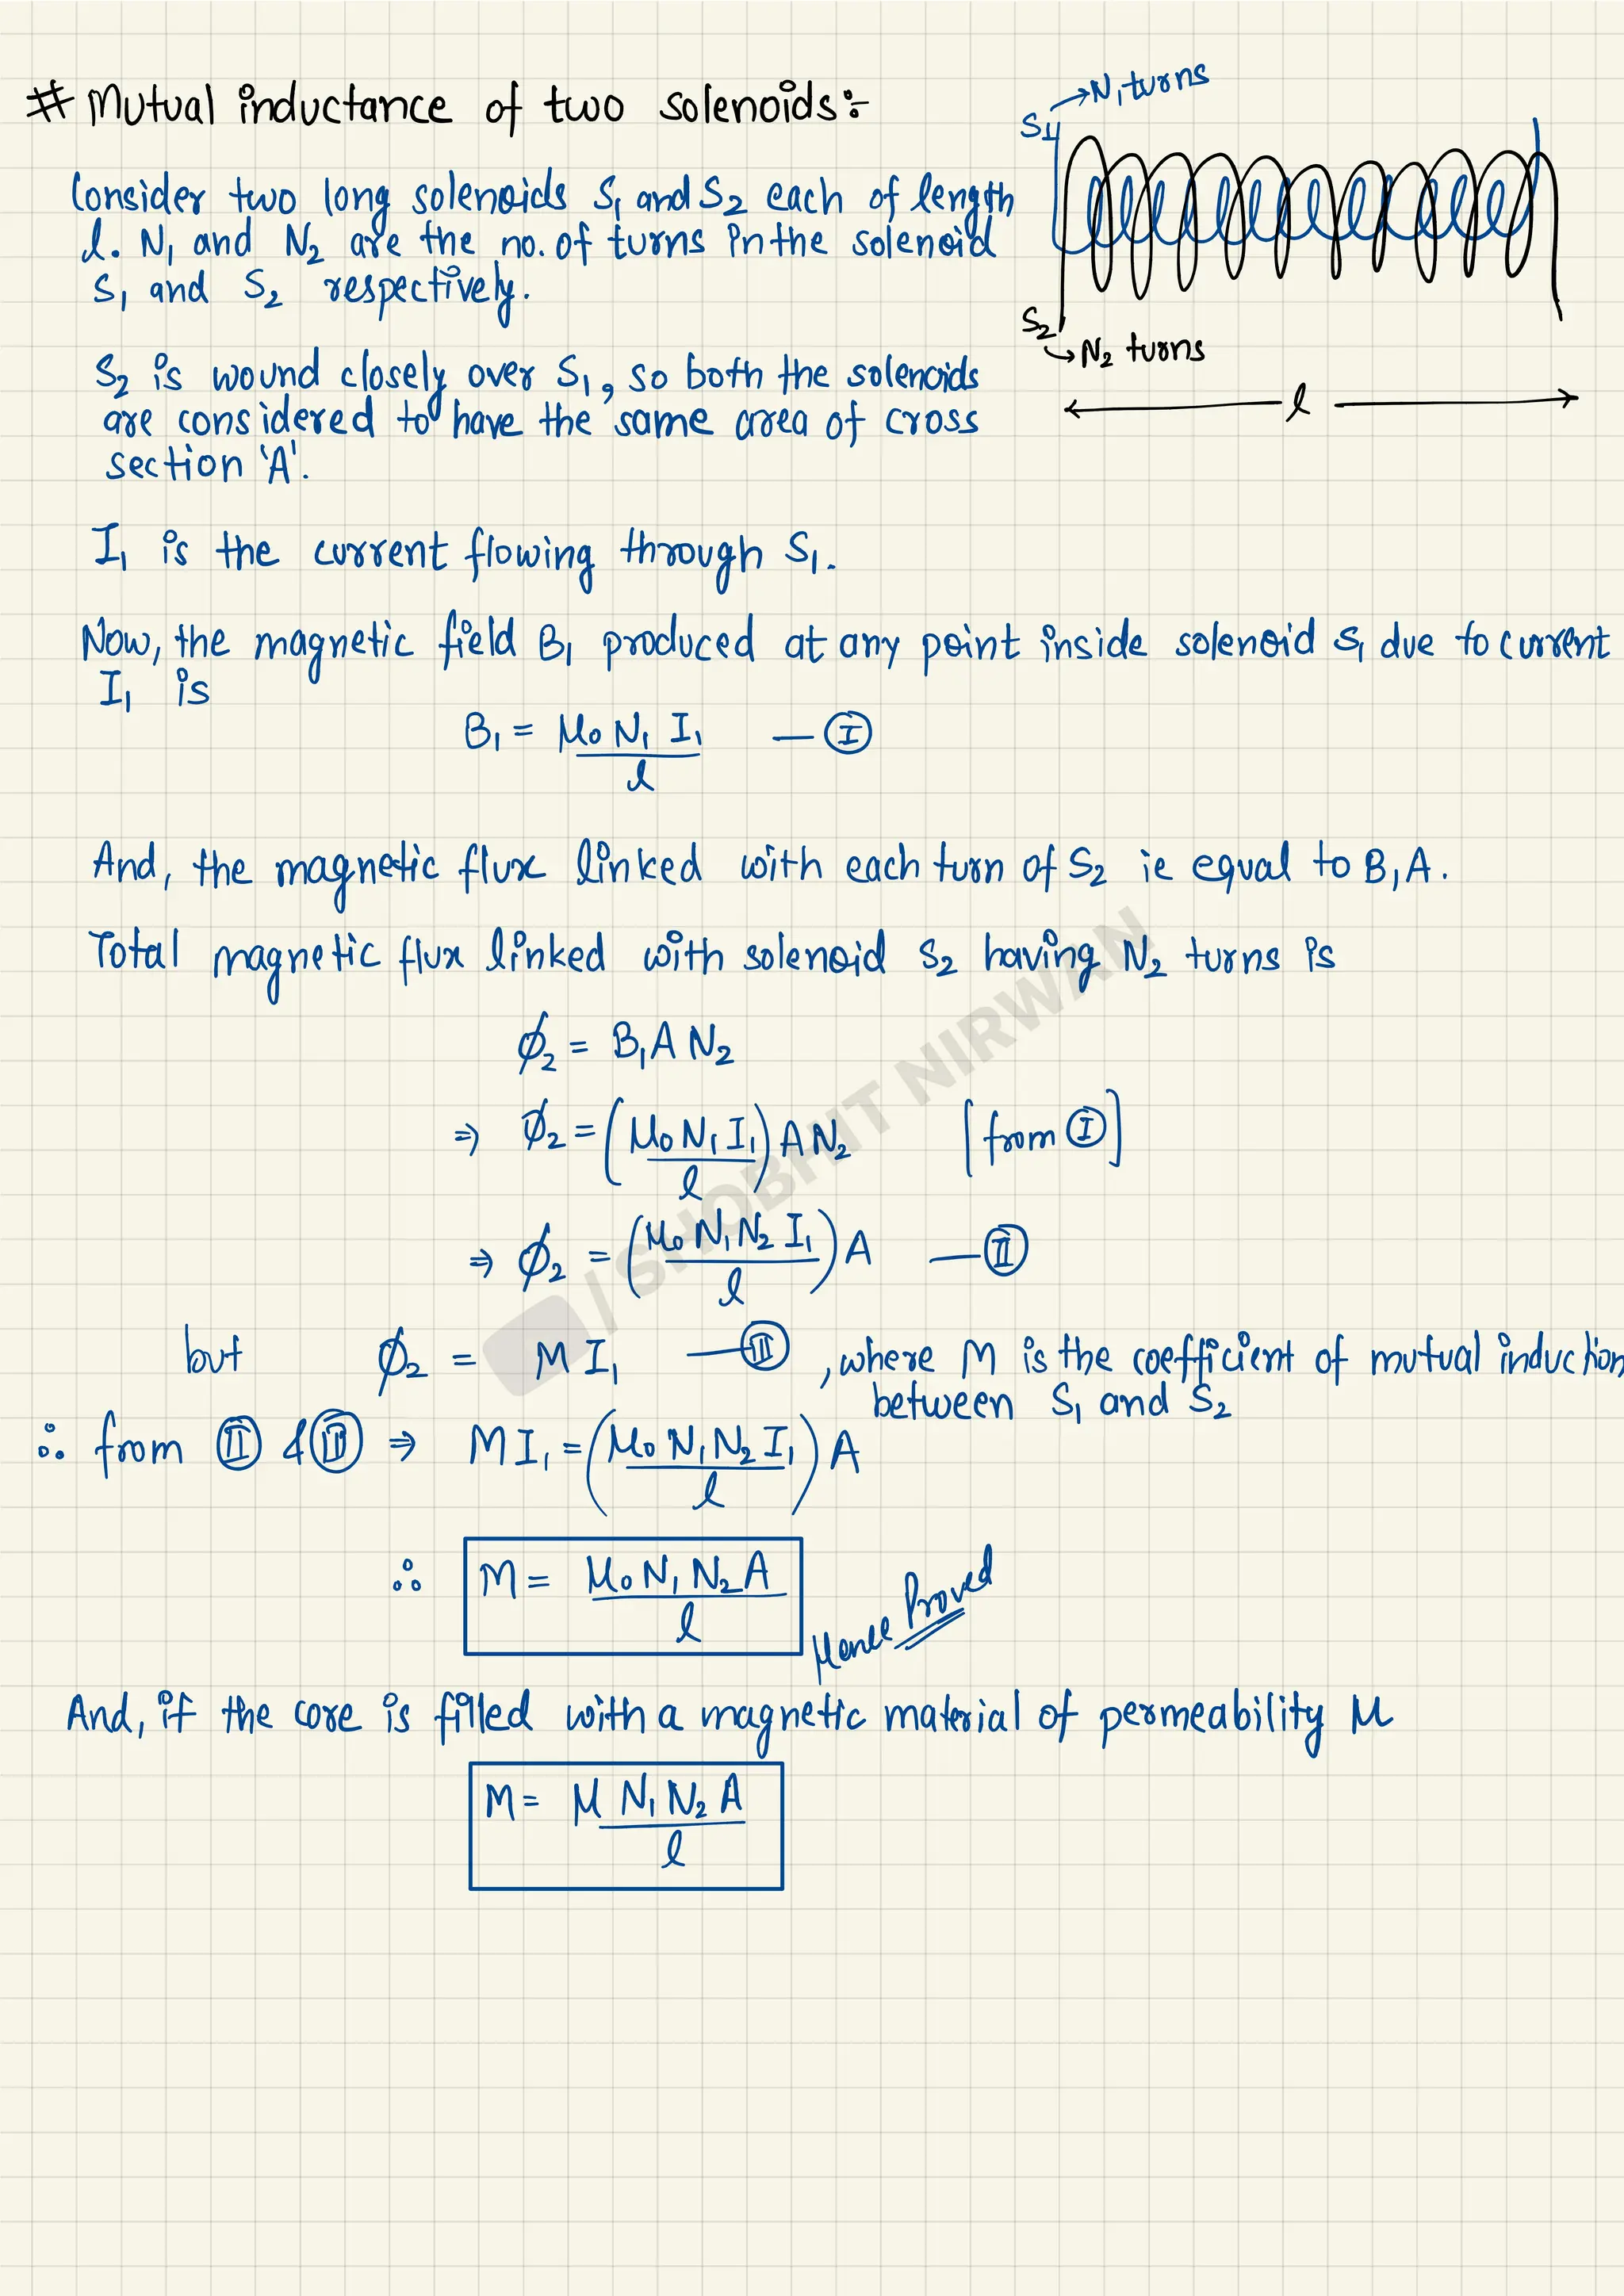 # Mutual inductance of two solenoids:-
S1 → N1 turns
Consider two long solenoids S1 and S2 each of length
l. N1 and N2 are the no. of turns in the solenoid
S1 and S2 respectively.
S2 → N2 turns
l
S2 is wound closely over S1, so both the solenoids
are considered to have the same area of cross
section 'A'.
I1 is the current flowing through S1.
Now, the magnetic field B1 produced at any point inside solenoid S1 due to current
I1 is
B1 = μ0 N1 I1 / l — (I)
And, the magnetic flux linked with each turn of S2 ie equal to B1A.
Total magnetic flux linked with solenoid S2 having N2 turns is
ϕ2 = B1A N2
⇒ ϕ2 = (μ0 N1 I1 / l) A N2 [from (I)]
⇒ ϕ2 = (μ0 N1 N2 I1 / l) A — (II)
but ϕ2 = M I1 — (III) , where M is the coefficient of mutual induction
between S1 and S2
∴ from (II) & (III) ⇒ M I1 = (μ0 N1 N2 I1 / l) A
∴ M = μ0 N1 N2 A / l
Hence Proved
And, if the core is filled with a magnetic material of permeability μ
M = μ N1 N2 A / l
/ SHOBHIT NIRWAN